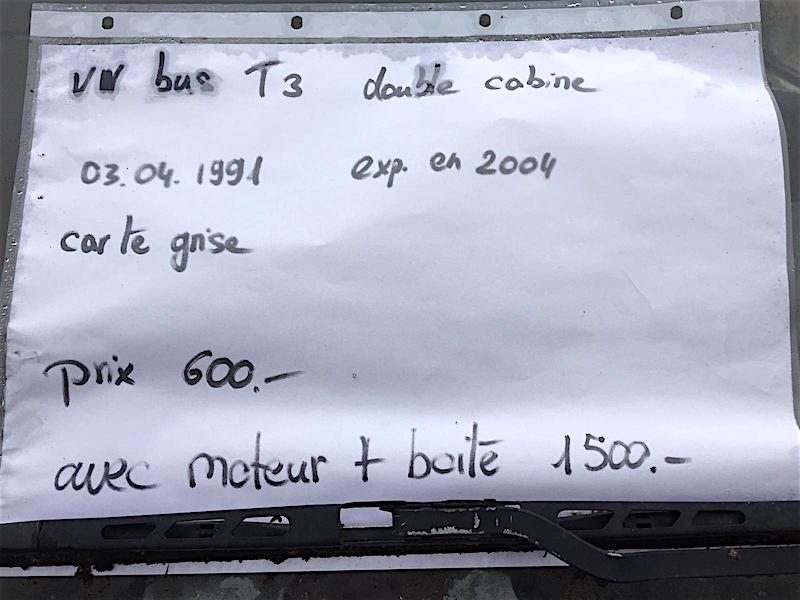 VW bus T3 double cabine
03.04.1991 exp. en 2004
carte grise
prix 600.-
avec moteur + boite 1500.-